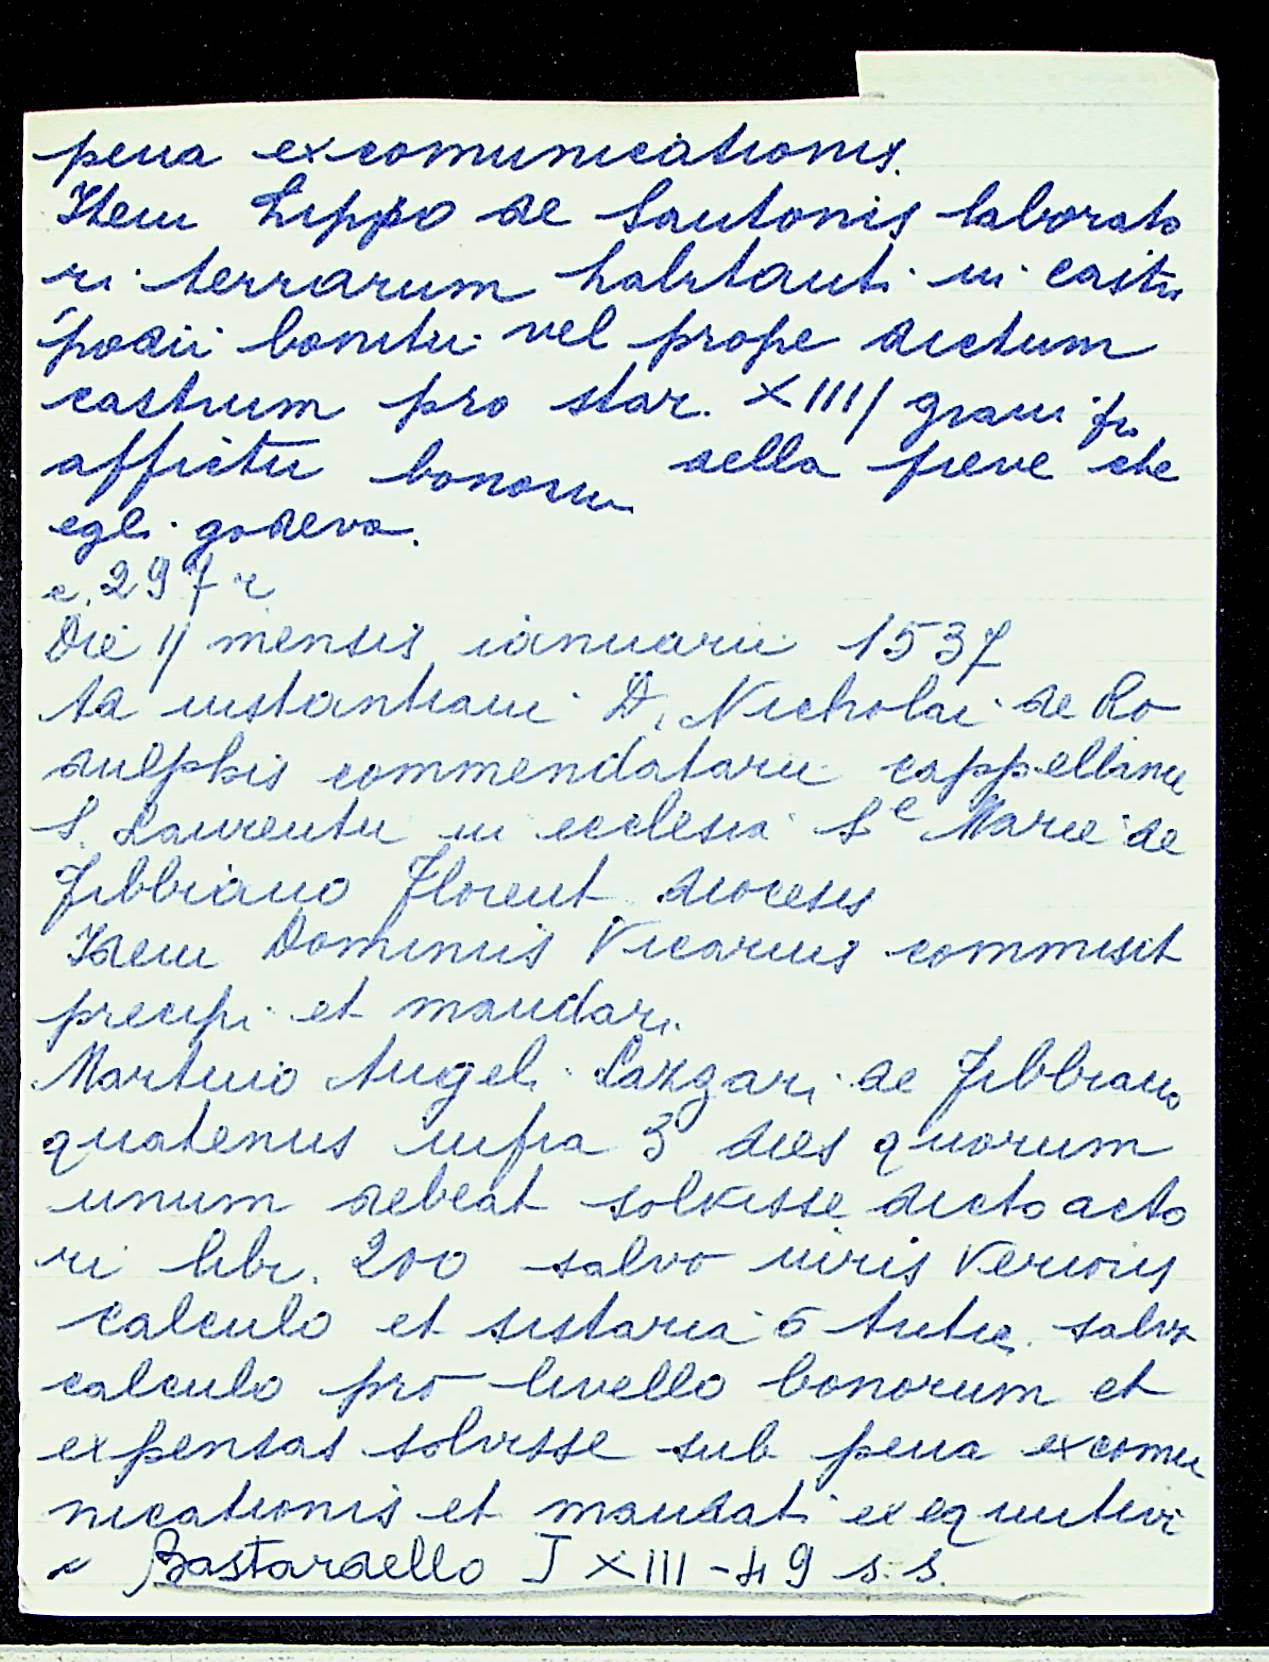 pena excomunicationis.
Item Lippo de Santonis laborato
ri terrarum habitanti in castro
podii boniti vel prope dictum
castrum pro star. XIII/ grani pro
affictu bonorum della pieve che
egli godeva.
c. 297 r
Die 11 mensis ianuarii 1537
Ad instantiam D. Nicholai de Ro
dulphis commendatarii cappellanie
S. Laurentii in ecclesia Se Marie de
Fibbiano Florent. diocesis
Idem Dominus Vicarius commisit
precipi et mandari
Martino Angeli Lazzari de Fibbiano
quatenus infra 3 dies quorum
unum debeat solvisse dicto acto
ri libr. 200 salvo iuris verioris
calculo et sistaria 5 tritici salvo
calculo pro livello bonorum et
expensas solvisse sub pena excomu
nicationis et mandati exequutivi
Bastardello J XIII - 49 s.s.